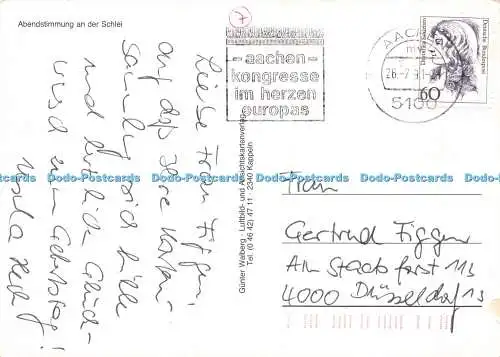 Abendstimmung an der Schlei
Liebe Frau Figgen,
auf dass Ihre Karten-
sich fülle
und herzliche Glück-
wünsche zum Geburtstag!
Ursula
Günter Walberg · Luftbild- und Ansichtskartenverlag
Tel. (0 46 42) 47 11 · 2340 Kappeln
aachen-
kongresse
im herzen
europas
AACHEN
26.-7.91
5100
Deutsche Bundespost
60
Frau
Gertrud Figgen
Am Stadtforst 113
4000 Düsseldorf 13
Dodo-Postcards Dodo-Postcards Dodo-Postcards Dodo-Postcards Dodo-Postcards